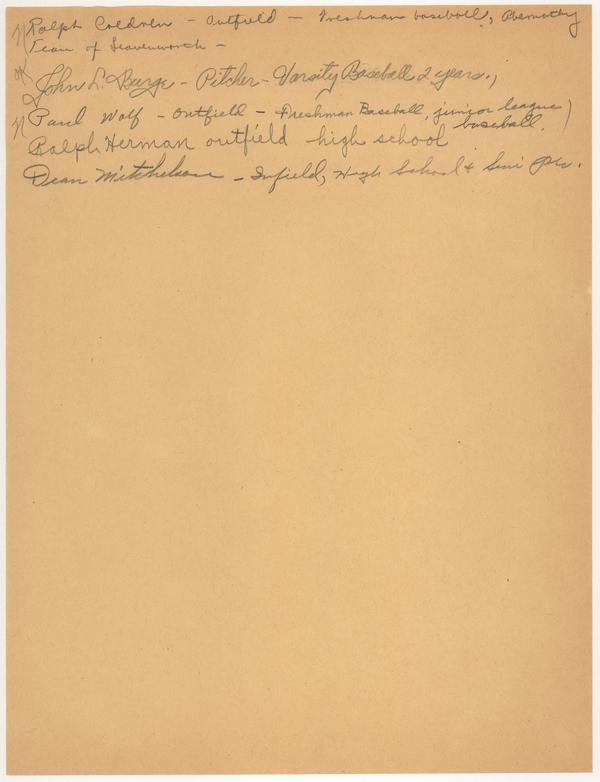 Ralph Coldren - Outfield - Freshman baseball, Abernathy
Team of Leavenworth -
OK
John L. Burge - Pitcher - Varsity Baseball 2 years.,
Paul Wolf - Outfield - Freshman Baseball, junior league
baseball.
Ralph Herman outfield high school
Dean Mitchelson - Infield, High School & Semi Pro.